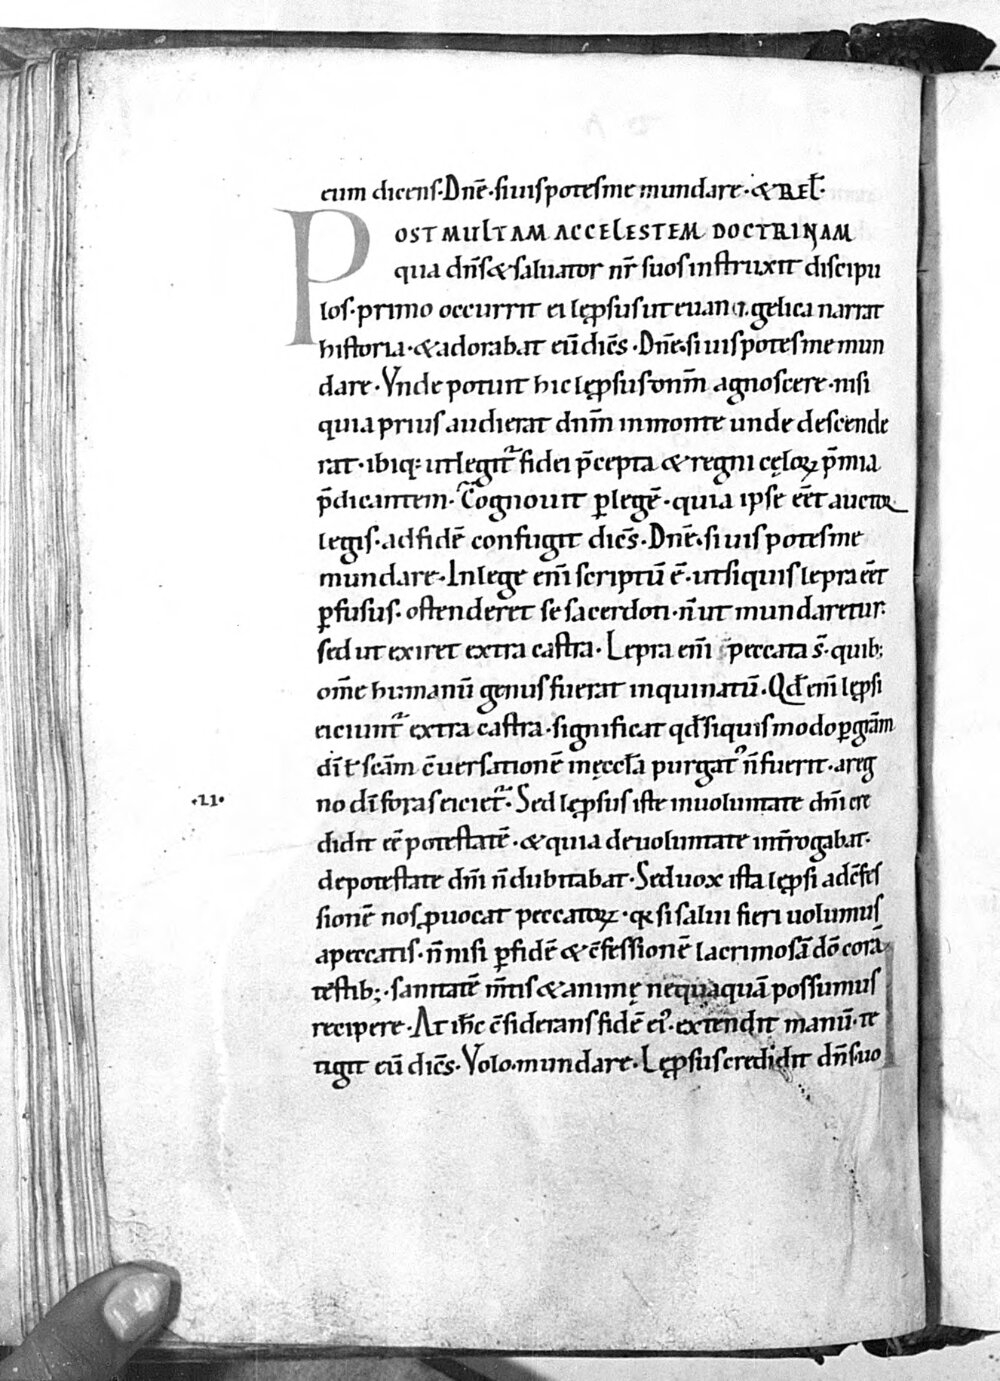 eum dicens· Dn̄e· si uis potes me mundare· & REL̄·
POST MULTAM AC CELESTEM DOCTRINAM
qua dn̄s & saluator nr̄ suos instruxit discipu
los· primo occurrit ei lęp̱sus ut euangelica narrat
historia· & adorabat eū dic̄s· Dn̄e· si uis potes me mun
dare· Vnde potuit hic lęp̱sus om̄m agnoscere· nisi
quia prius audierat dn̄m in monte unde descende
rat· ibiq: ut legit᷑ fidei p̄cepta & regni cęloꝝ p̄mia
p̄dicantem· Cognouit ꝑ legē· quia ipse eēt auctor
legis· ad fidē confugit dic̄s· Dn̄e· si uis potes me
mundare· In lege em̄ scriptū ē· ut siquis lepra eēt
ꝑfusus· ostenderet se sacerdoti· n̄ ut mundaretur·
sed ut exiret extra castra· Lepra em̄ peccata s̄· quib;
om̄e humanū genus fuerat inquinatū· Qđ em̄ lęp̱si
eiciunt᷑ extra castra· significat qđ siquis modo ꝑ grām
dī ł sc̄am c̄uersationē in ęccłа purgatꝰ n̄ fuerit· a reg
·11·
no dī foras eiciet᷑· Sed lęp̱sus iste in uoluntate dn̄i cre
didit eē potestatē· & quia de uoluntate int̄rogabat·
de potestate dn̄i n̄ dubitabat· Sed uox ista lęp̱si ad c̄fes
sionē nos ꝓuocat peccatoꝝ· q̄ si salui fieri uolumus
a peccatis· n̄ nisi ꝑ fidē & c̄fessionē lacrimosā dō corā
testib;· sanitatē m̄tis & animę nequaquā possumus
recipere· At ih̄c c̄siderans fidē eiꝰ· extendit manū· te
tigit eū dic̄s· Volo· mundare· Lęp̱sus credidit dn̄ suo